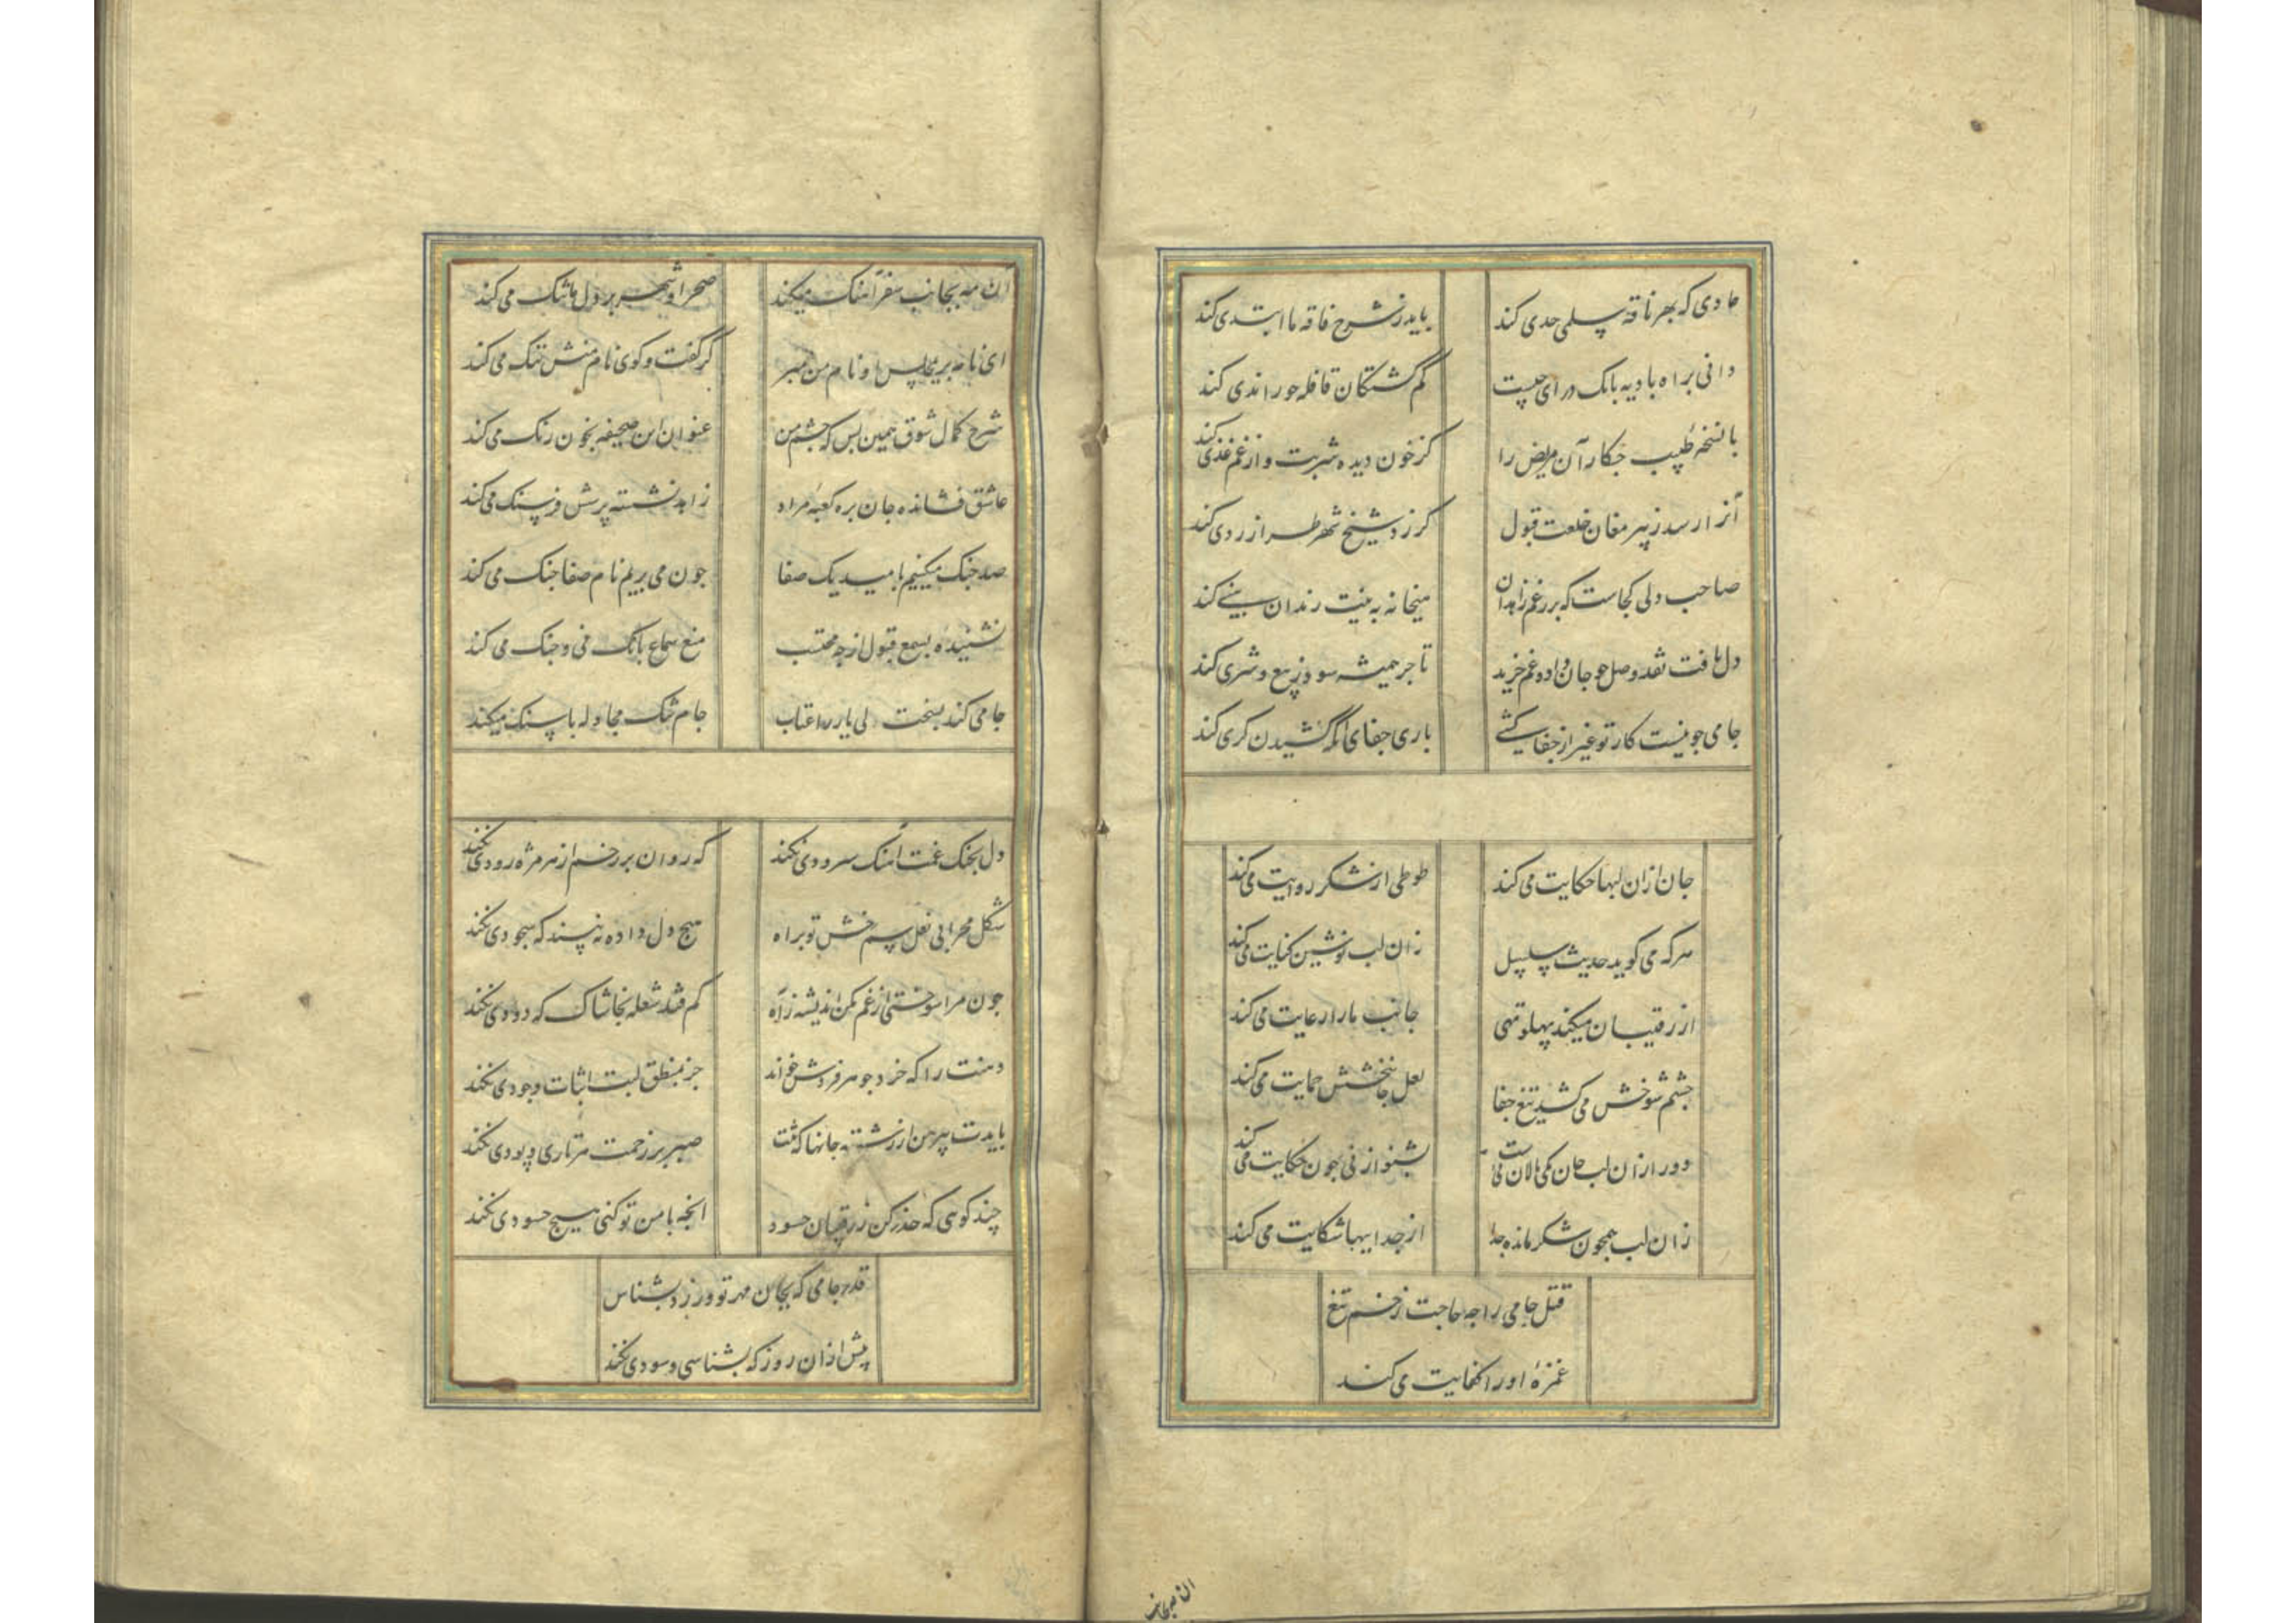 حادی که بهر ناقه سلمی حدی کند باید ز شرح فاقه ما ابتدی کند
دانی براه بادیه بانک درای چیست کم گشتکان قافله جو را ندی کند
با نسخه طبیب جکار آن مریض را کز خون دیده شربت و از غم غذی کند
آنرا رسد ز پیر مغان خلعت قبول کز زد شیخ شهر طراز ردی کند
صاحب دلی کجاست که بر رغم زاهدان میخانه به نیت رندان بنی کند
دل یافت نقد وصل جو جان داد و غم خرید تاجر همیشه سود ز بیع و شری کند
جامی جو نیست کار تو غیر از جفا کشی باری جفای آنکه کشیدن کری کند
جان ازان لبها حکایت می کند طوطی از شکر روایت می کند
هرکه می کوید حدیث سلسبیل زان لب نوشین کنایت می کند
از رقیبان میکند پهلو تهی جانب ما را رعایت می کند
جشم شوخش می کشد تیغ جفا لعل جانبخشش حمایت می کند
دور ازان لب جان کی نالان نیست بشنو از نی جون حکایت می کند
زان لب همجون شکر مانده جدا از جداییها شکایت می کند
قتل جامی را جه حاجت زخم تیغ
غمزهٔ او را کفایت می کند
آن مه بجانب
آن مه بجانب سفر آهنک میکند صحرا و شهر بر دل ما تنک می کند
ای نامه بر مجلس او نام من مبر کز گفت و کوی نام منش ننک می کند
شرح کمال شوق همین بس که جشم من عنوان این صحیفه بخون رنک می کند
عاشق فشانده جان بره کعبه مراد زاهد نشسته پرسش فرسنک می کند
صد جنک میکنیم بامید یک صفا جون می بریم نام صفا جنک می کند
نشنیده بسمع قبول ارچه محتسب منع سماع بانک نی و جنک می کند
جامی کند بسخت دلی یار را عتاب جام تنک مجادله با سنک میکند
دل بجنک غمت آهنک سرودی نکند که روان بر رخم از هر مژه رودی نکند
شکل محرابی نعل سم رخش تو براه هیج دل داده نبیند که سجودی نکند
جون مرا سوختی از غم مکن اندیشه ز آه کم فتد شعله بخاشاک که دودی نکند
دهنت را که خرد جوهر فردش خواند جز منطق لبت اثبات وجودی نکند
بایدت پیرهن از رشته جانها که تنت صبر بر زحمت هر تاری و پودی نکند
چند کویی که حذر کن ز رقیبان حسود انجه با من تو کنی هیج حسودی نکند
قدر جامی که بجان مهر تو ورزد بشناس
پیش ازان روز که بشناسی و سودی نکند